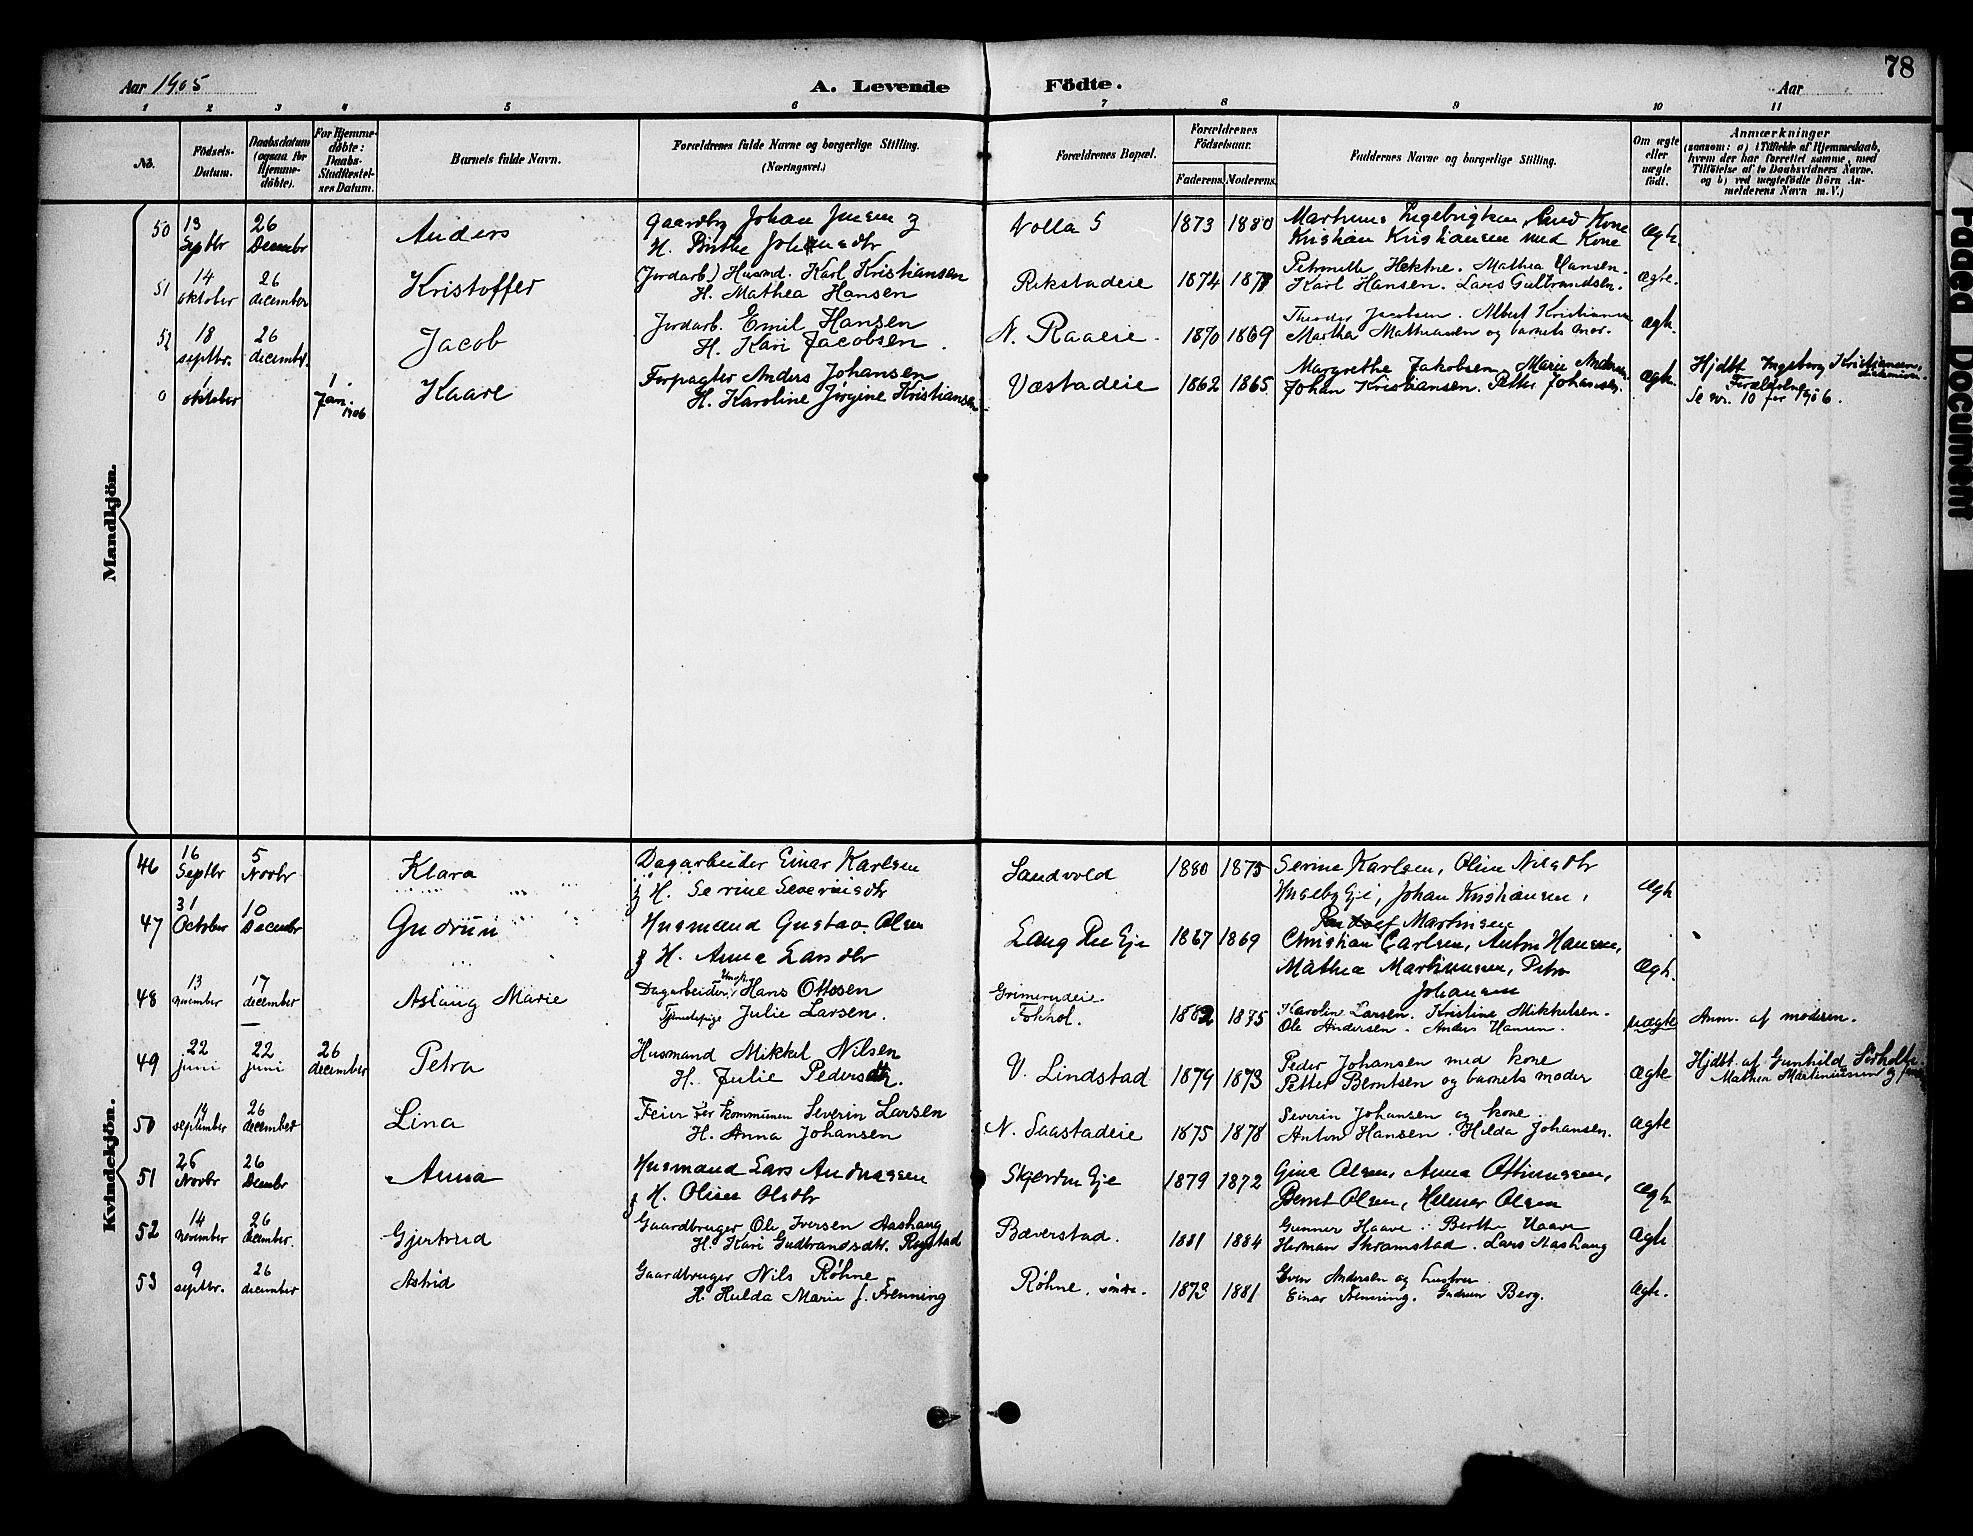 78
Aar 1905 A. Levende Födte. Aar
1 2 3 4 5 6 7 8 9 10 11
No. Födsels-Datum. Daabsdatum (ogsaa for Hjemme-döbte). For Hjemme-döbte: Daabs-Stadfæstel-ses Datum. Barnets fulde Navn. Forældrenes fulde Navne og borgerlige Stilling. (Næringsvei.) Forældrenes Bopæl. Forældrenes Födselsaar. Faderens. Moderens. Faddernes Navne og borgerlige Stilling. Om ægte eller uægte födt. Anmærkninger (saasom: a) i Tilfælde af Hjemmedaab, hvem der har forrettet samme, med Tilföielse af to Daabsvidners Navne, og b) ved uægtefödte Börn An-melderens Navn m. V.)
Mandkjön.
50 13 Septbr 26 Decembr Anders Gaardbr Johan Jensen & H. Birthe Volla S 1873 1880 Kristian Kristiansen med Kone Ægte
51 14 oktober 26 december Kristoffer (Jordarb.) Husmd. Karl Kristiansen H. Mathea Hansen Rikstadeie 1874 1878 Petronelle Hektne. Mathea Hansen. Karl Hansen. Lars Gulbrandsen. Ægte.
52 18 septbr. 26 december Jacob Jordarb. Emil Hansen H. Kari Jacobsen. N. Raaeie 1870 1869 Theodor Jacobsen. Albert Kristiansen Martha Mathiasen og barnets mor. Ægte.
0 1 oktober 1 Jan. 1906 Kaare Forpagter Anders Johansen H. Karoline Jörgine Kristiansen Væstadeie 1862 1865 Margrethe Jakobsen Marie Andersen Johan Kristiansen. Petter Johansen. Ægte. Hjdbt. Ingeborg Kristiansen, Forældrene. Se nr. 10 for 1906.
Kvindekjön.
46 16 Septbr 5 Novbr Klara Dagarbeider Einar Karlsen & H. Serine Severinsdtr Sandvold 1880 1875 Serine Karlsen, Oline Nilsdtr Eje, Johan Kristiansen, Martinsen Ægte
47 31 October 10 Decembr Gudrun Husmand Gustav Olsen & H. Anna Larsdtr Lang Rue Eje 1867 1869 Christian Carlsen, Anton Hansen, Mathea Martinsen, Petra Johansen Ægte.
48 13 november 17 december Aslaug Marie Dagarbeider Ungk. Hans Ottosen Tjenestepige Julie Larsen. Grimerudeie. Fokhol. 1882 1875 Karolin Larsen. Kristine Mikkelsen. Ole Andersen. Anders Hansen. uægte Anm. af moderen.
49 22 juni 22 juni 26 december Petra Husmand Mikkel Nilsen H. Julie Pedersdtr. V. Lindstad 1879 1873 Peder Johansen med kone Petter Berntsen og barnets moder Ægte Hjdbt af Gunhild Mathea Martiniussen og
50 14 september 26 december Lina Feier for kommunen Severin Larsen H. Anna Johansen N. Saastadeie 1875 1878 Severin Johansen og kone. Anton Hansen. Hilda Johansen. Ægte
51 26 Novbr 26 Decmbr Anna Husmand Lars Andreassen & H. Oline Olsdtr Skjerden Eje 1879 1872 Gina Olsen, Anna Ottinussen, Bernt Olsen, Helmer Olsen Ægte
52 14 november 26 december. Gjertrud Gaardbruger Ole Iversen Aashaug H. Kari Gudbrandsdtr. Rugstad Bæverstad. 1881 1884 Gunner Haave. Berthe Haave Herman Skramstad. Lars Aashaug Ægte
53 9 septbr. 26 december Astrid Gaardbruger Nils Røhne H. Hulda Marie f. Frenning Røhne, søndre. 1873 1881 Even Andersen og hustru Einar Frenning. Gudrun Berg. Ægte.
Padded Document